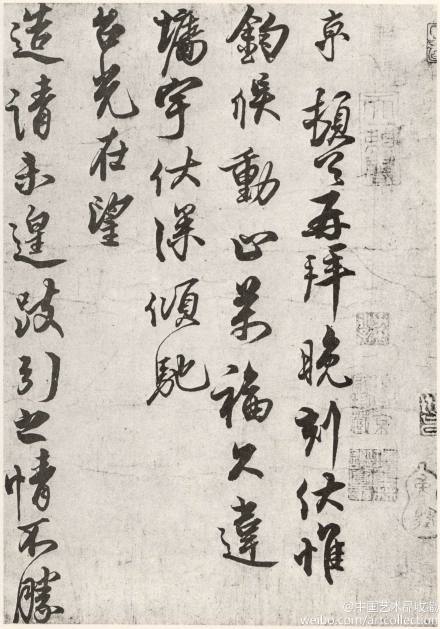 京頓首再拜晚刻伏惟
鈞候動止萬福久違
墻宇伏深傾馳
台光在望
造請未遑跂引之情不勝
@中国艺术品收藏
weibo.com/artcollection